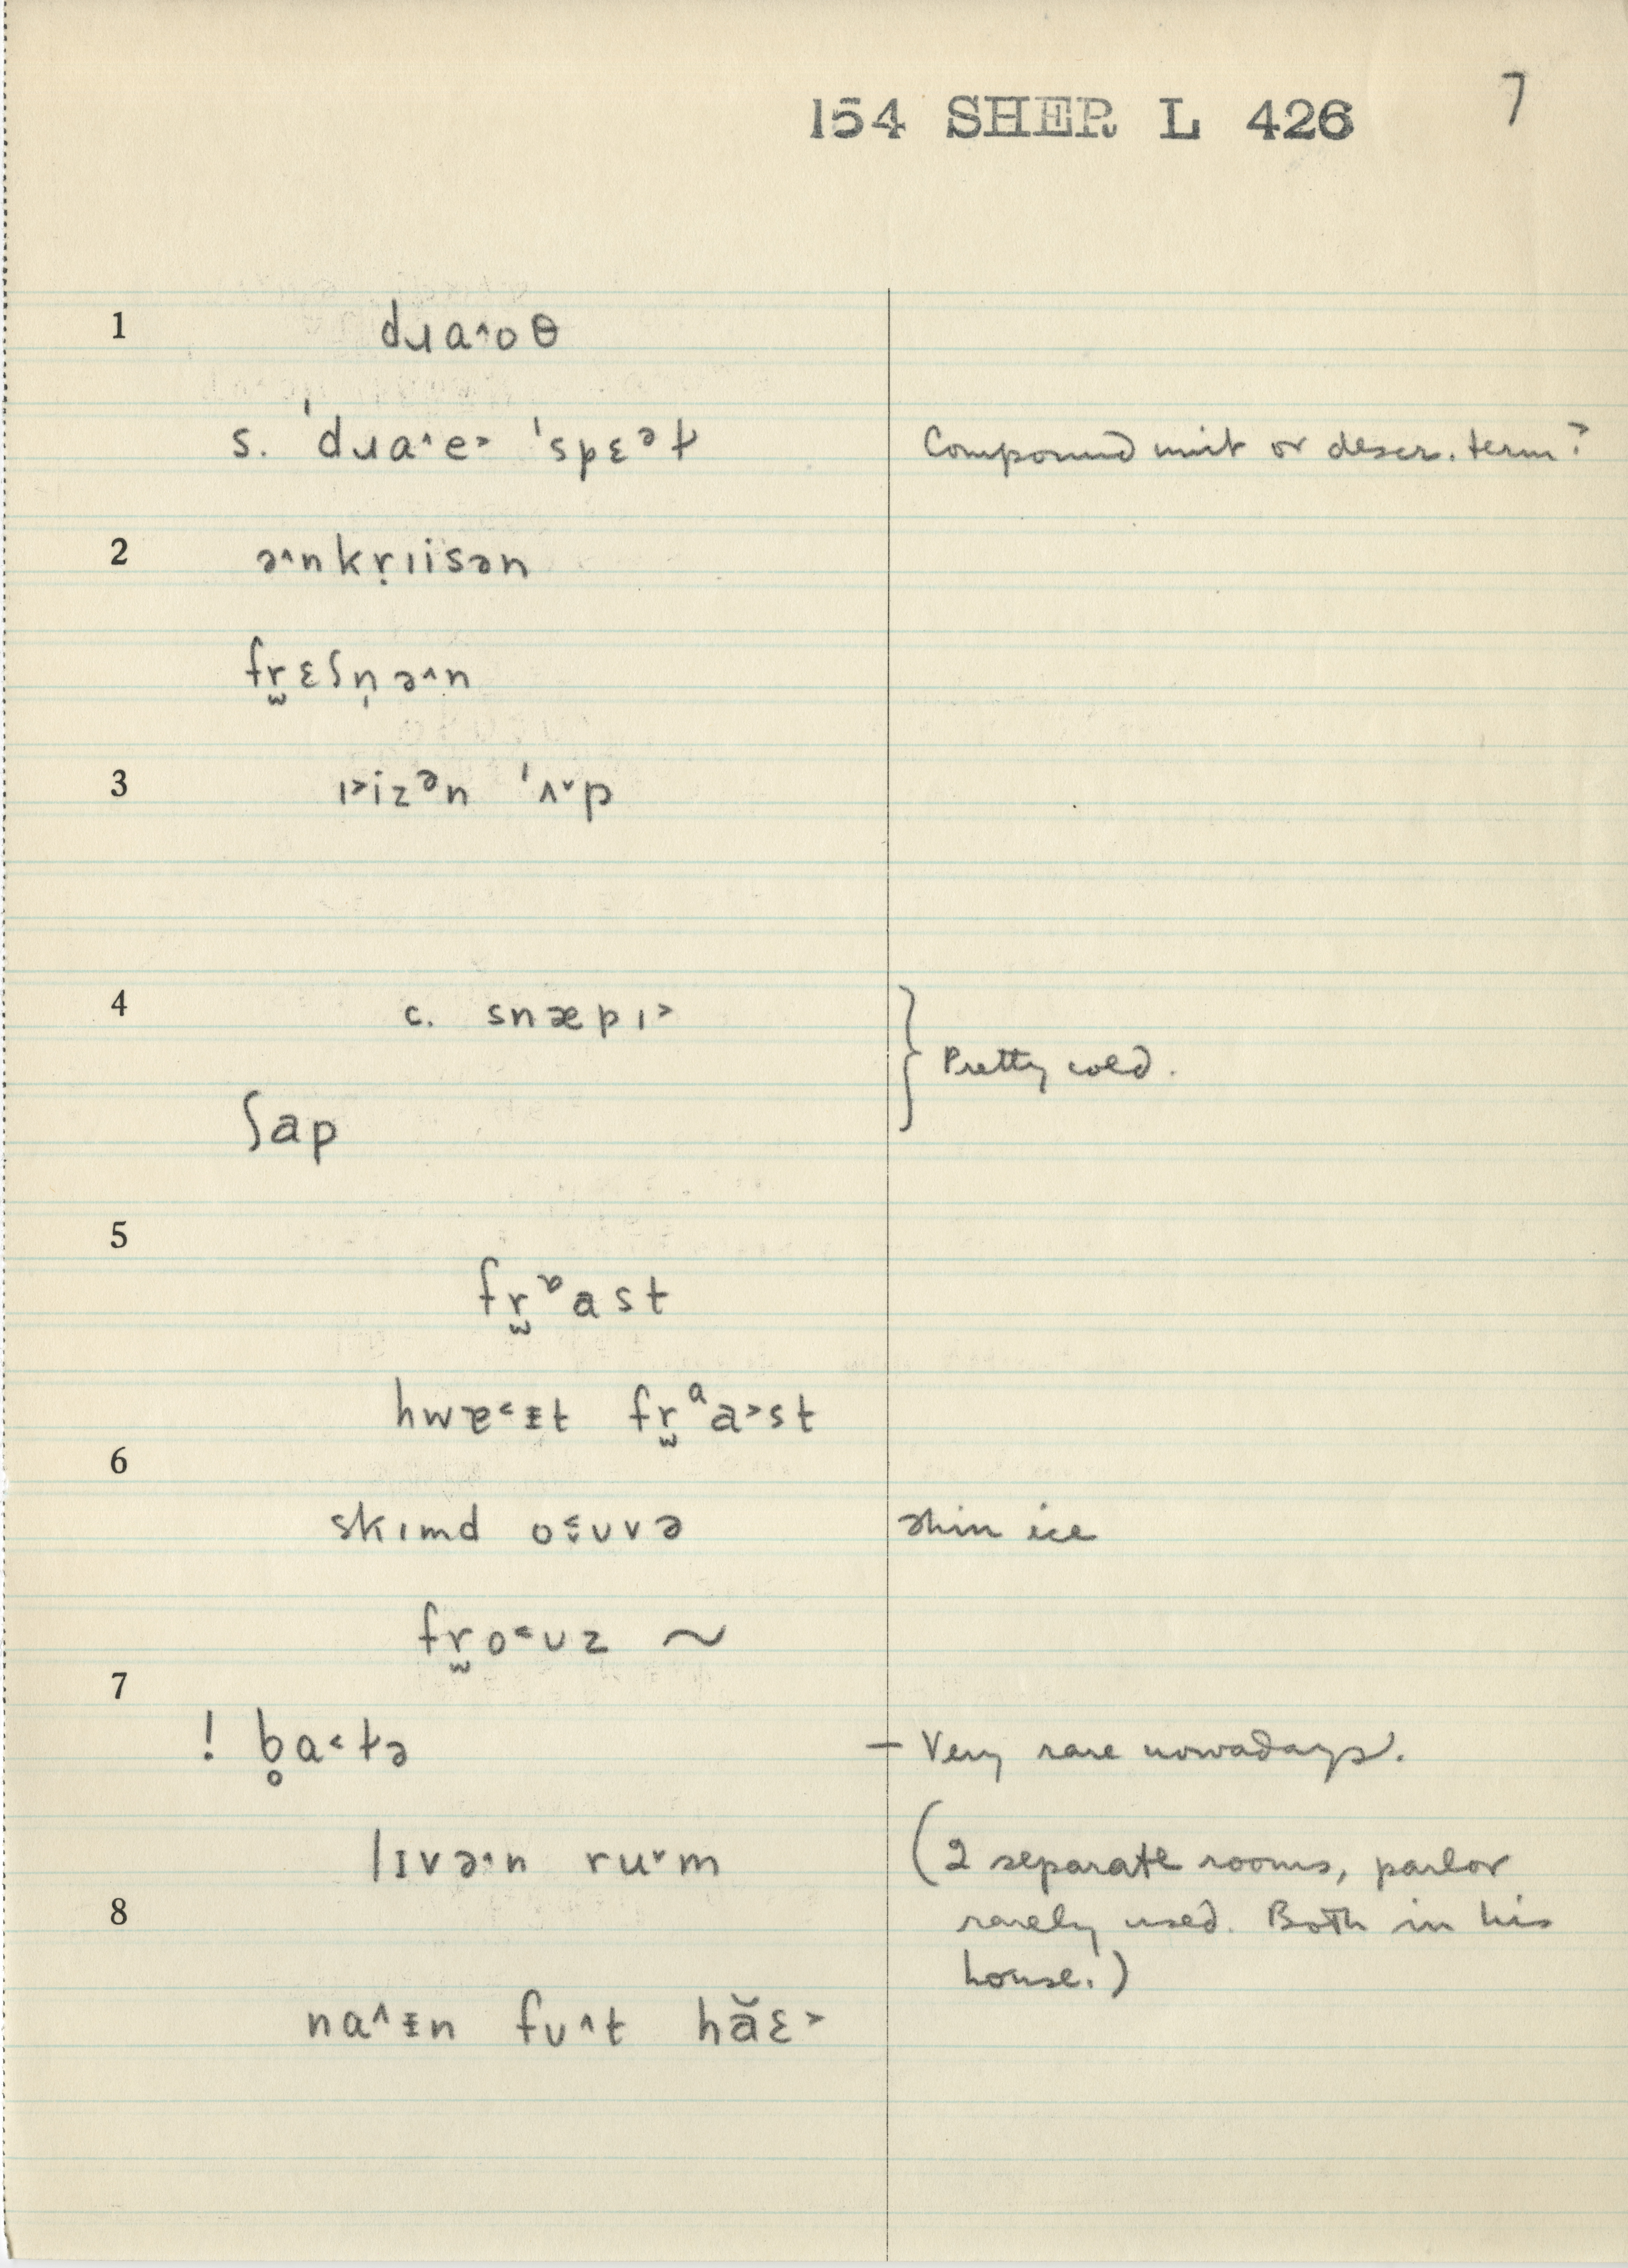 154 SHER L 426 7
1 dɹa˄oθ
s. ˈdɹa˄e˃ ˈspɛᵊt̬ Compound unit or descr. term?
2 ə˄nkṛɪisən
fr̫ɛʃn̩ə˄n
3 ɪ˃izᵊn ˈʌ˅p
4 c. snæpɪ˃
Pretty cold.
ʃap
5
fr̫ᶹast
hwɐ˂ᵻt fr̫ᵃa˃st
6
skɪmd o˂̬ʊvə thin ice
fr̫o˂ʊz ~
7
! b̥a˂t̬ə — Very rare nowadays.
lɪvə˄n ru˅m (2 separate rooms, parlor
8 rarely used. Both in his
house.)
na˄ᵻn fʊ˄t hăɛ˃